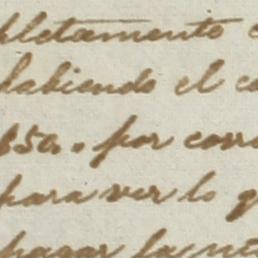 pletamente
habiendo el co
850. por corr
para ver lo q
pagar